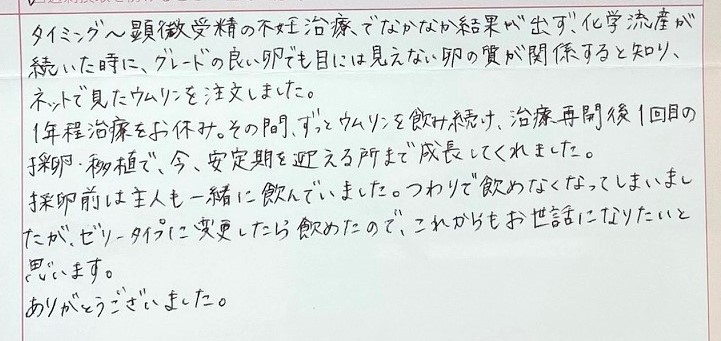 タイミング～顕微受精の不妊治療、でなかなか結果が出ず、化学流産が
続いた時に、グレードの良い卵でも目には見えない卵の質が関係すると知り、
ネットで見たウムリンを注文しました。
1年程治療をお休み。その間、ずっとウムリンを飲み続け、治療再開後1回目の
採卵・移植で、今、安定期を迎える所まで成長してくれました。
採卵前は主人も一緒に飲んでいました。つわりで飲めなくなってしまいまし
たが、ゼリータイプに変更したら飲めたので、これからもお世話になりたいと
思います。
ありがとうございました。